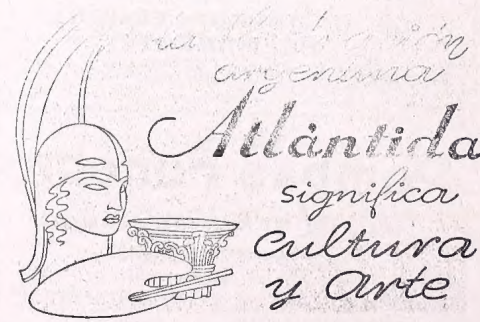 argentina
Atlántida
significa
cultura
y arte